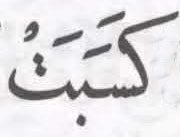 كَسَبَتْ